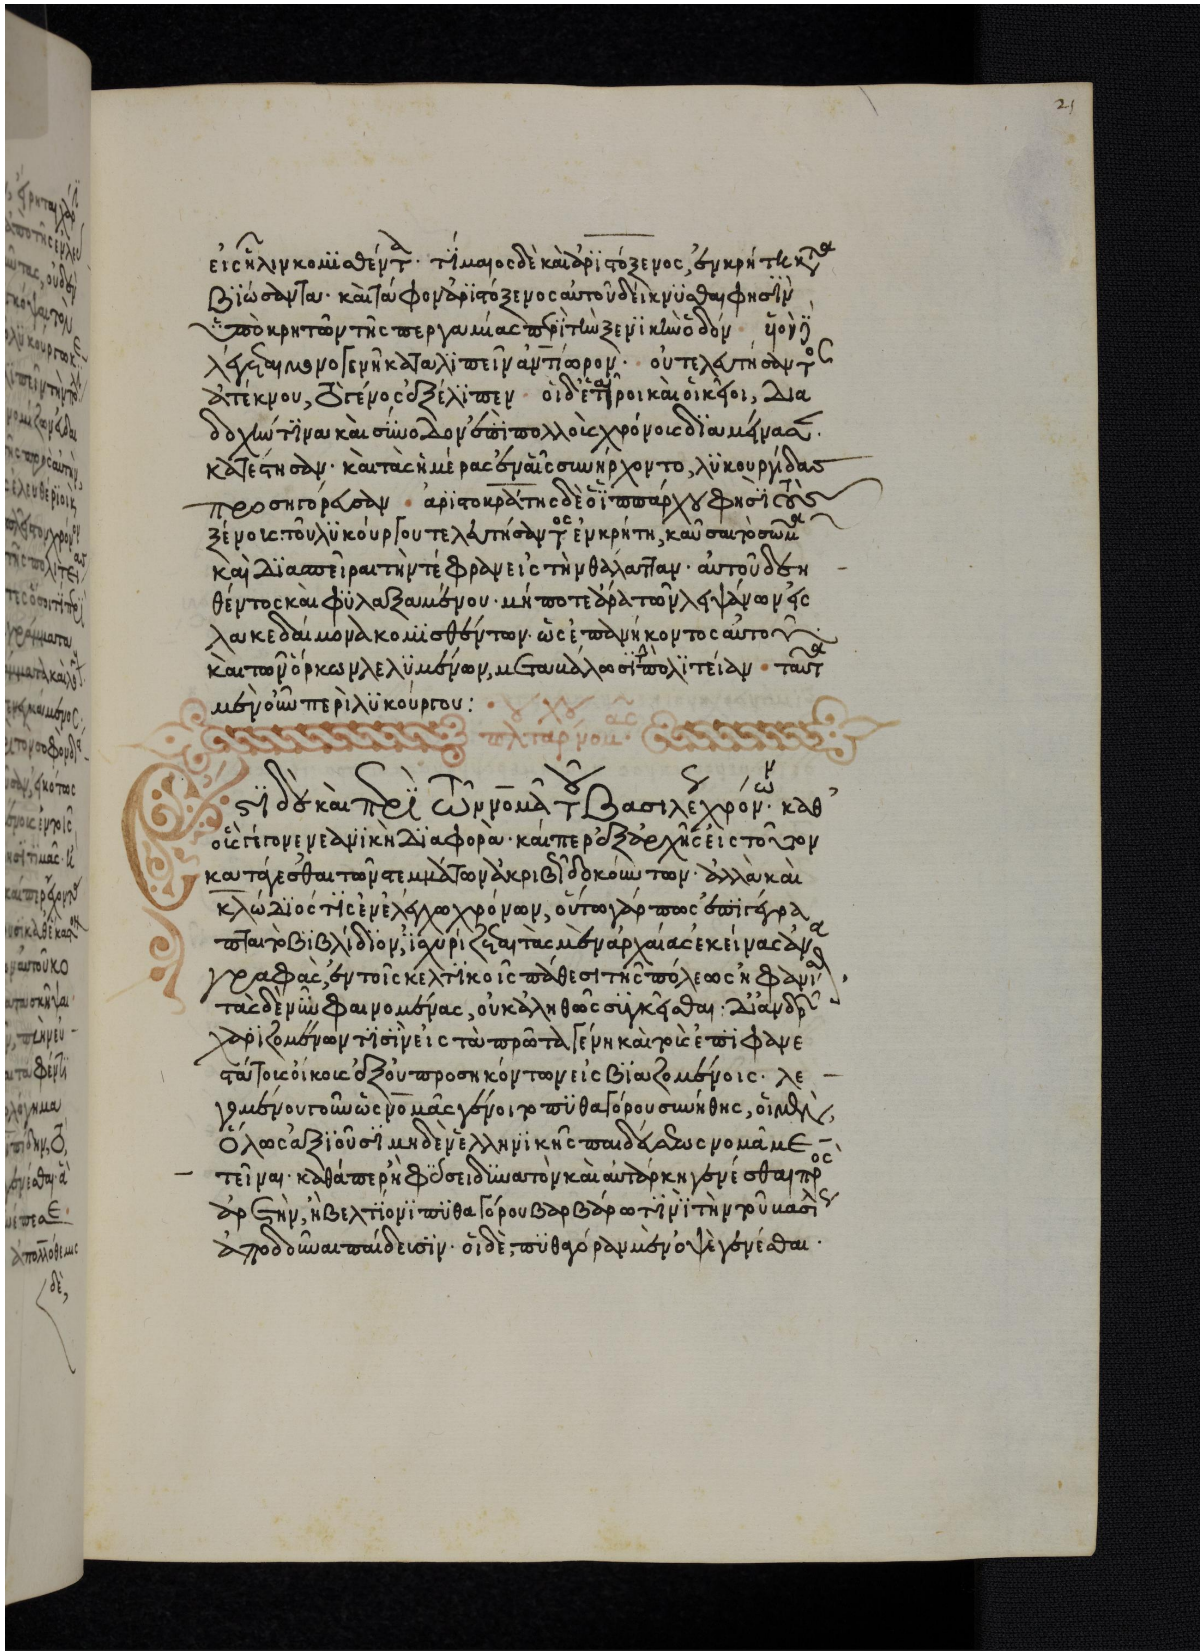 εἰς ἦλιν κομϊσθέντα· τίμαιος δὲ καὶ ἀρϊστόξενος, ἐν κρήτη κατα
βϊώσαντα· καὶ τάφον ἀρϊστόξενος αὐτοῦ δείκνϋσθαι φησὶν
ὑπὸ κρητῶν τῆς περγαμίας περὶ τὴν ξενϊκὴν ὁδόν· υἱὸν δὲ
λέγεται μονογενῆ καταλϊπεῖν ἀντίωρον· οὗ τελευτήσαντος
ἀτέκνου, τὸ γένος ἐξέλϊπεν· οἱ δ' ἑταῖροι καὶ οἰκεῖοι, δια
δοχήν τϊνα καὶ σύνοδον ἐπὶ πολλοῖς χρόνοις διαμείνασαν·
κατέστησαν· καὶ τὰς ἡμέρας ἐν αἷς συνήρχοντο, λϋκουργίδας
προσηγόρευσαν· ἀριστοκράτης δὲ ὁ ἱππάρχου φησὶ τοὺς
ξένοις τοῦ λϋκούργου τελευτήσαντος ἐν κρήτη, καῦσαι τὸ σῶμα
καὶ διασπεῖραι τὴν τέφραν εἰς τὴν θάλατταν· αὐτοῦ δεη
θέντος καὶ φϋλαξαμένου· μήποτε ἄρα τῶν λειψάνων εἰς
λακεδαίμονα κομϊσθέντων· ὡς ἐπανήκοντος αὐτοῦ·
καὶ τῶν ὅρκων λελϋμένων, μεταβάλωσϊ τὴν πολϊτείαν· ταῦτα
μὲν οὖν περὶ λϋκούργου:
πλουταρχου νουμας
Ἔστϊ δὲ καὶ περὶ τῶν νομᾶ τοῦ βασιλέως χρόνων· καθ'
οὓς γέγονε νεανϊκὴ διαφορὰ· καίπερ ἐξ ἀρχῆς εἰς τοῦτον
κατάγεσθαι τῶν στεμμάτων ἀκριβῶς δοκούντων· ἀλλὰ καὶ
κλώδϊός τϊς ἐν ἐλέγχω χρόνων, οὕτω γάρ πως ἐπϊγέγρα
πται τὸ βϊβλίδϊον, ἰσχυρίζεται τὰς μὲν ἀρχαίας ἐκείνας ἀνα
γραφὰς, ἐν τοῖς κελτϊκοῖς πάθεσι τῆς πόλεως ἠφανίσθαι,
τὰς δὲ νῦν φαινομένας, οὐκ ἀληθῶς συγκεῖσθαι· δι' ἀνδρῶν
χαρϊζομένων τϊσὶν εἰς τὰ πρῶτα γένη καὶ τοὺς ἐπϊφανε
στάτοις οἴκοις ἐξ οὐ προσηκόντων εἰς βϊαζομένοις· λε
γομένου τοῦν ὡς νομᾶς γένοιτο πϋθαγόρου συνήθης, οἱ μὲν,
ὅλως ἀξϊοῦσϊ μηδὲν ἑλληνϊκῆς παιδεύσεως νομᾶ με
τεῖναι· καθάπερ ἢ φύσει δϋνατὸν καὶ αὐτάρκη γενέσθαι πρὸς
ἀρετὴν, ἢ βελτίονϊ πϋθαγόρου βαρβάρω τϊνὶ τὴν τοῦ βασιλέως
ἀποδοῦναι παίδευσϊν· οἱ δὲ, πϋθαγόραν μὲν ὀψὲ γενέσθαι·
21